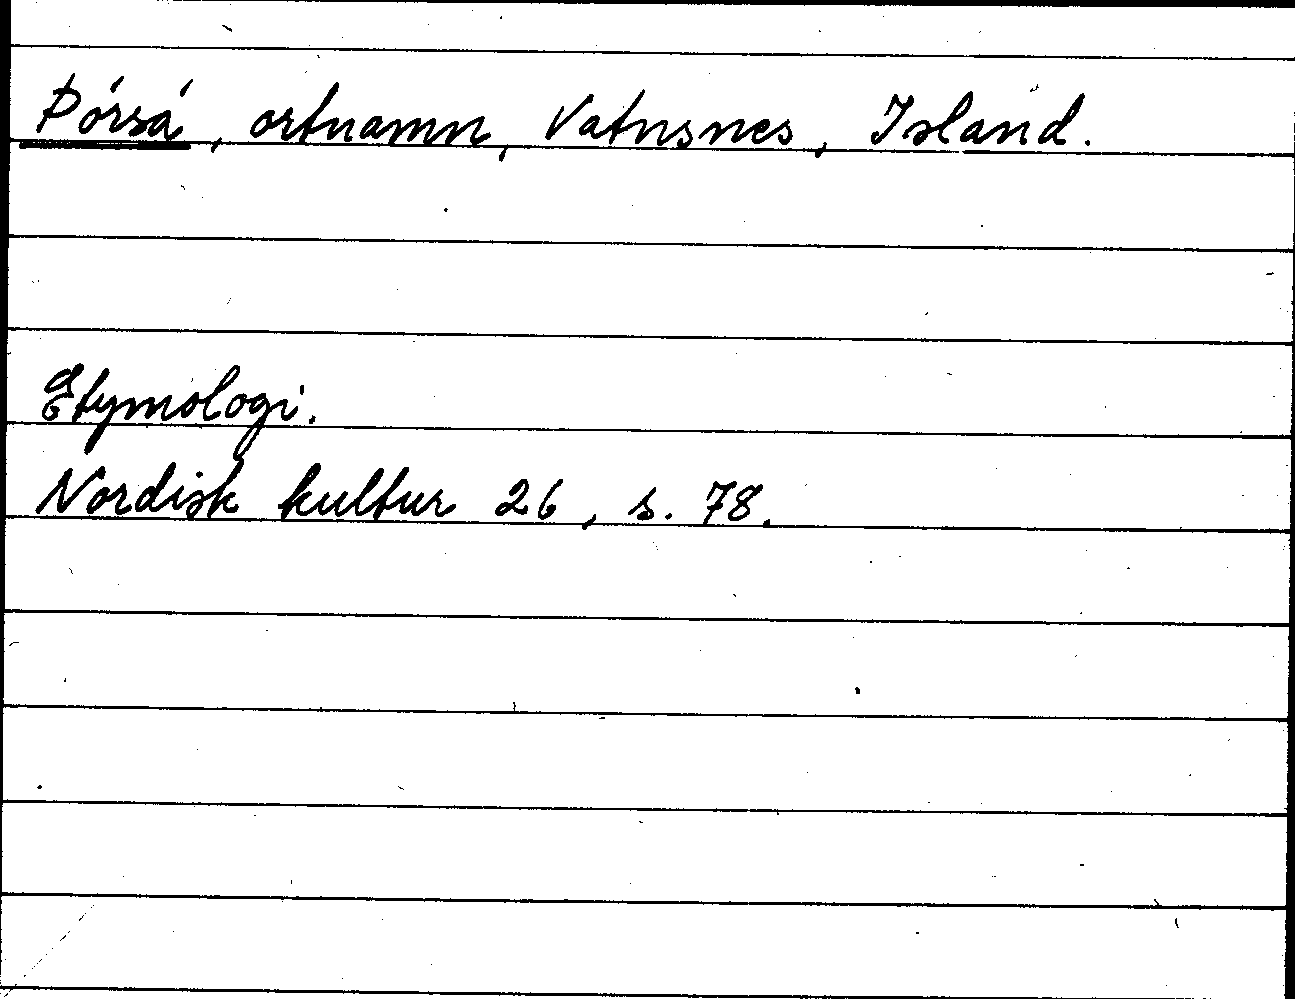 Þórsá, ortnamn, Vatnsnes, Island.
Etymologi.
Nordisk kultur 26, s. 78.